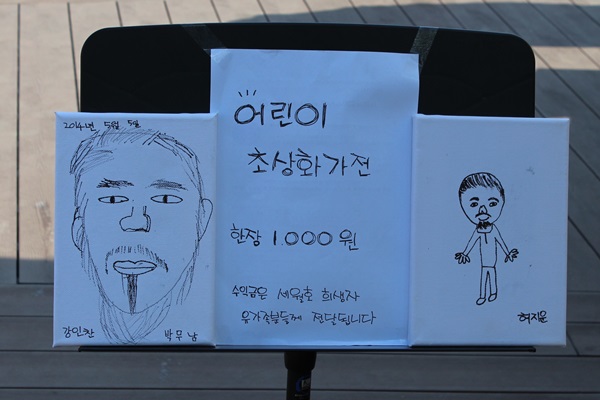 2014년 5월 5일
강인찬 박무남
어린이
초상화가전
한장 1.000원
수익금은 세월호 희생자
유가족분들께 전달됩니다
허지운